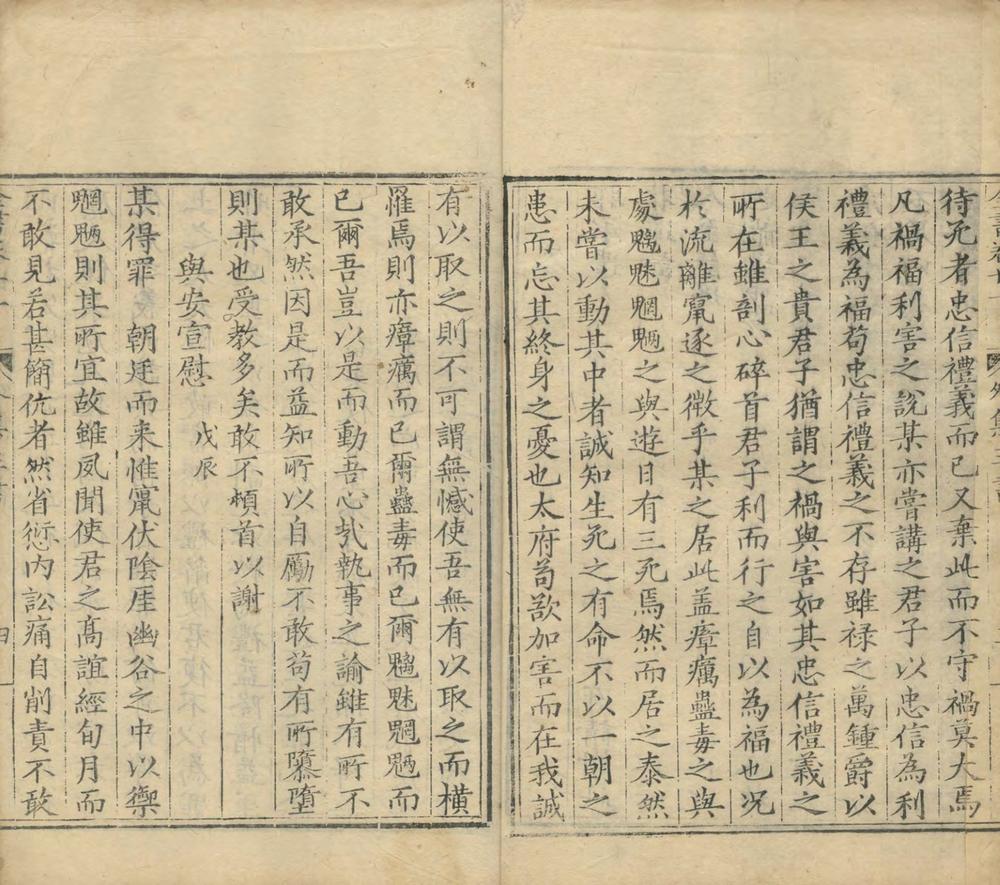 待死者忠信禮義而已又棄此而不守禍莫大焉
凡禍福利害之說某亦嘗講之君子以忠信為利
禮義為福苟忠信禮義之不存雖祿之萬鍾爵以
侯王之貴君子猶謂之禍與害如其忠信禮義之
所在雖剖心碎首君子利而行之自以為福也况
於流離竄逐之微乎某之居此益瘴癘蠱毒之與
處魑魅魍魎之與遊日有三死焉然而居之泰然
未嘗以動其中者誠知生死之有命不以一朝之
患而忘其終身之憂也太府苟欲加害而在我誠
有以取之則不可謂無憾使吾無有以取之而橫
罹焉則亦瘴癘而已爾蠱毒而已爾魑魅魍魎而
已爾吾豈以是而動吾心㦲執事之諭雖有所不
敢承然因是而益知所以自勵不敢苟有所隳墮
則某也受教多矣敢不頓首以謝
與安宣慰 戊辰
某得罪 朝廷而来惟竄伏陰厓幽谷之中以禦
魍魎則其所宜故雖夙聞使君之高誼經旬月而
不敢見若甚簡伉者然省愆内訟痛自削責不敢